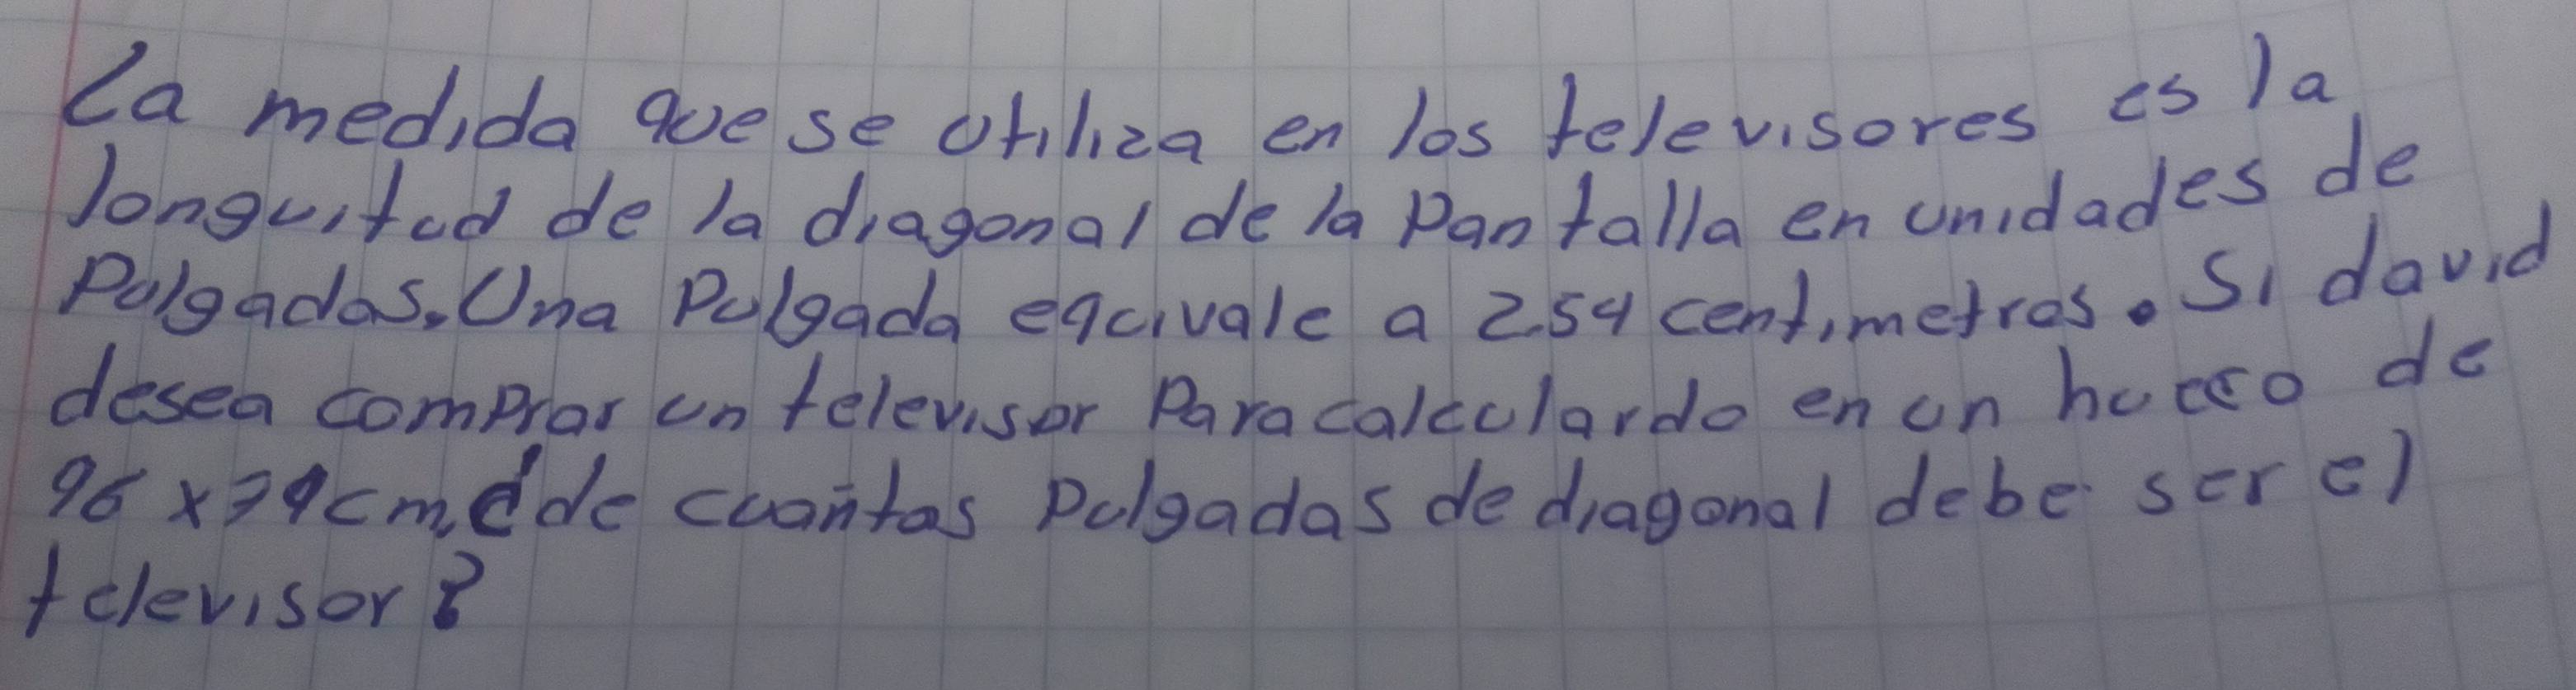 La medida que se utiliza en los televisores es la
longuitud de la diagonal de la Pantalla en unidades de
Pulgadas. Una Pulgada equivale a 2.54 centimetros. Si david
desea comprar un televisor Para calculardo en un hueco de
96 x 79 cm, ¿de cuantas Pulgadas de diagonal debe ser el
televisor?